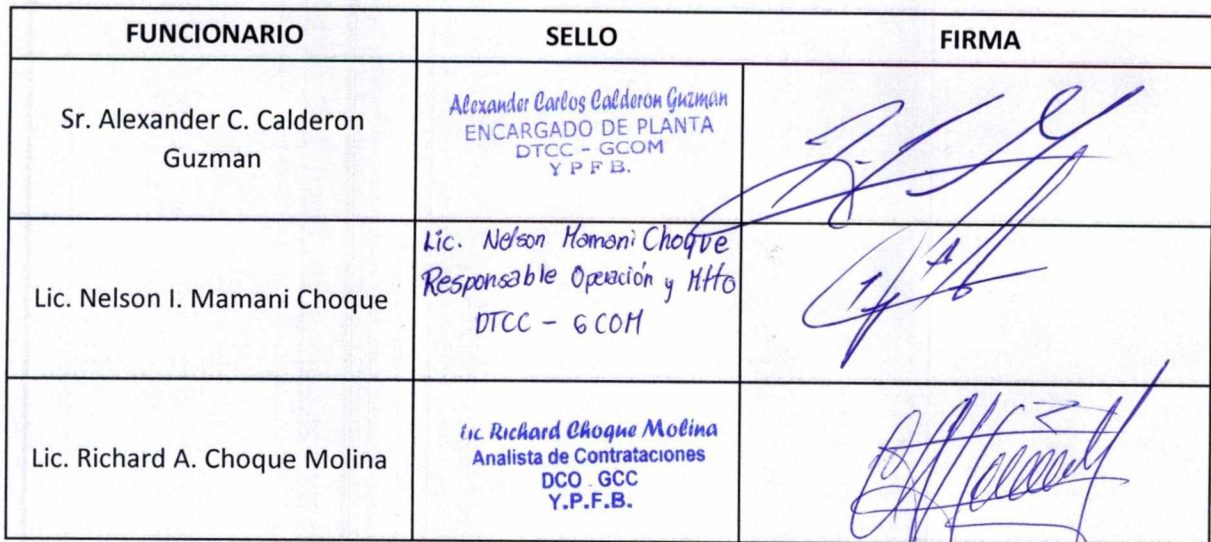 FUNCIONARIO SELLO FIRMA
Sr. Alexander C. Calderon
Guzman
Alexander Carlos Calderon Guzman
ENCARGADO DE PLANTA
DTCC - GCOM
Y P F B.
Lic. Nelson I. Mamani Choque
Lic. Nelson Mamani Choque
Responsable Operación y Mtto
DTCC - GCOM
Lic. Richard A. Choque Molina
Lic. Richard Choque Molina
Analista de Contrataciones
DCO . GCC
Y.P.F.B.